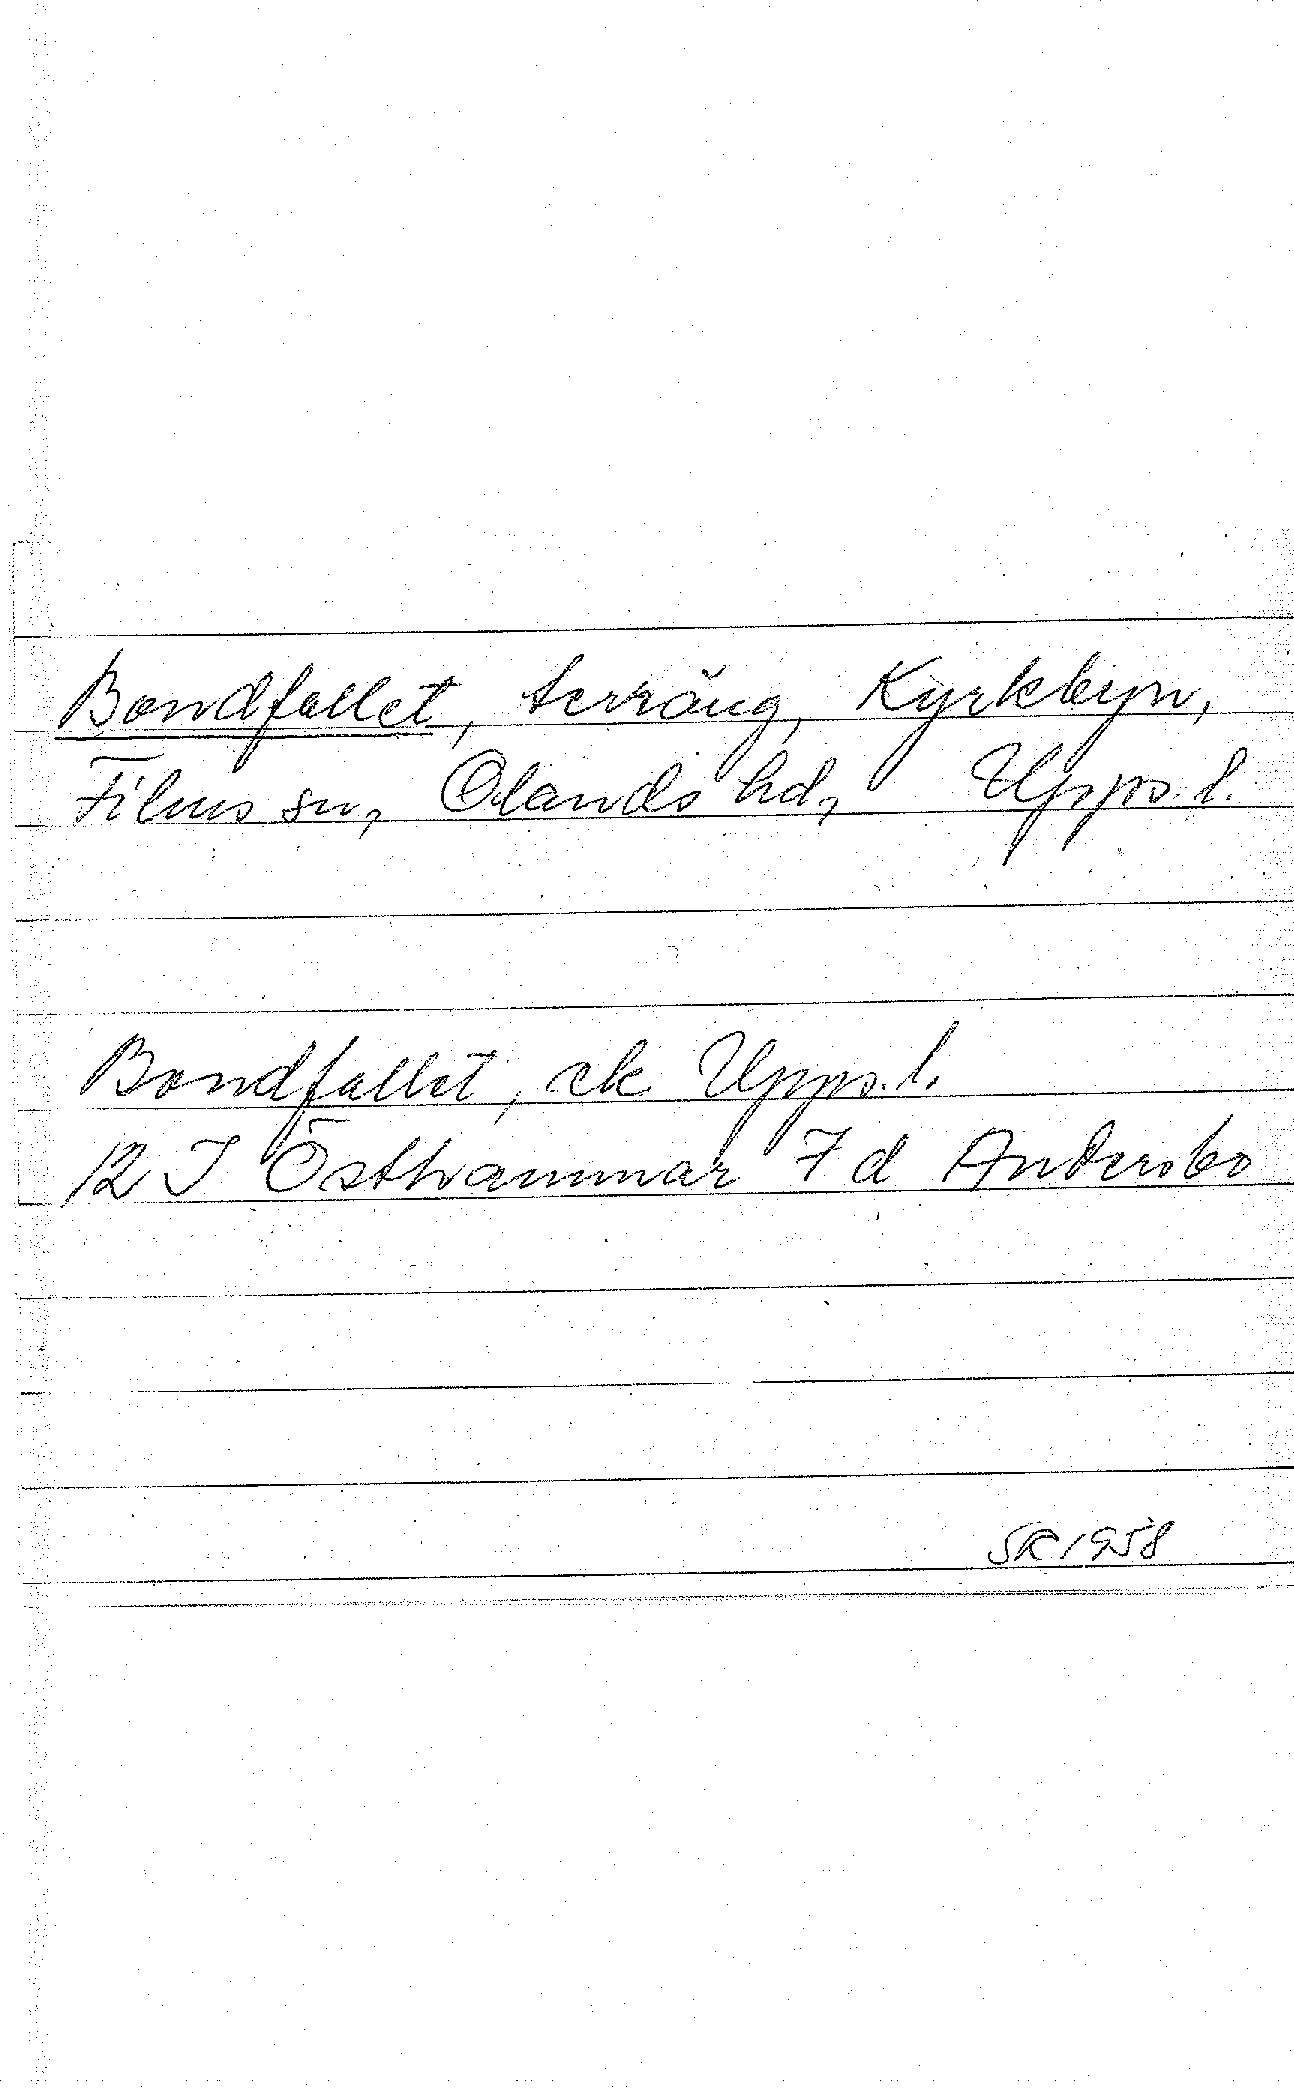 Bondfallet, terräng, Kyrkbyn,
Films sn, Olands hd, Upps. l.
Bondfallet, ek Upps. l.
12 I Östhammar 7 d Andersbo
SR 1958